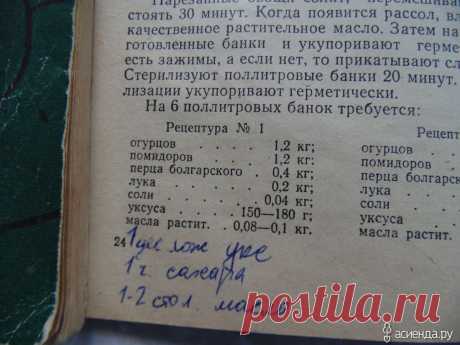 Нарезанные овощи солят, перемешива
стоять 30 минут. Когда появится рассол, вл
качественное растительное масло. Затем на
готовленные банки и укупоривают герме
есть зажимы, а если нет, то прикатывают сл
Стерилизуют поллитровые банки 20 минут.
лизации укупоривают герметически.
На 6 поллитровых банок требуется:
Рецептура № 1
огурцов . . . . 1,2 кг;
помидоров . . . . 1,2 кг;
перца болгарского . 0,4 кг;
лука . . . . . 0,2 кг;
соли . . . . . 0,04 кг;
уксуса . . . 150—180 г;
масла растит. . 0,08—0,1 кг.
Рецеп
огурцов . . .
помидоров . . .
перца болгарског
лука . . . .
соли . . . .
уксуса . . .
масла растит.
24
лож укс
1 ч. сахара
1-2 стол.
postila.ru
асиенда.ру